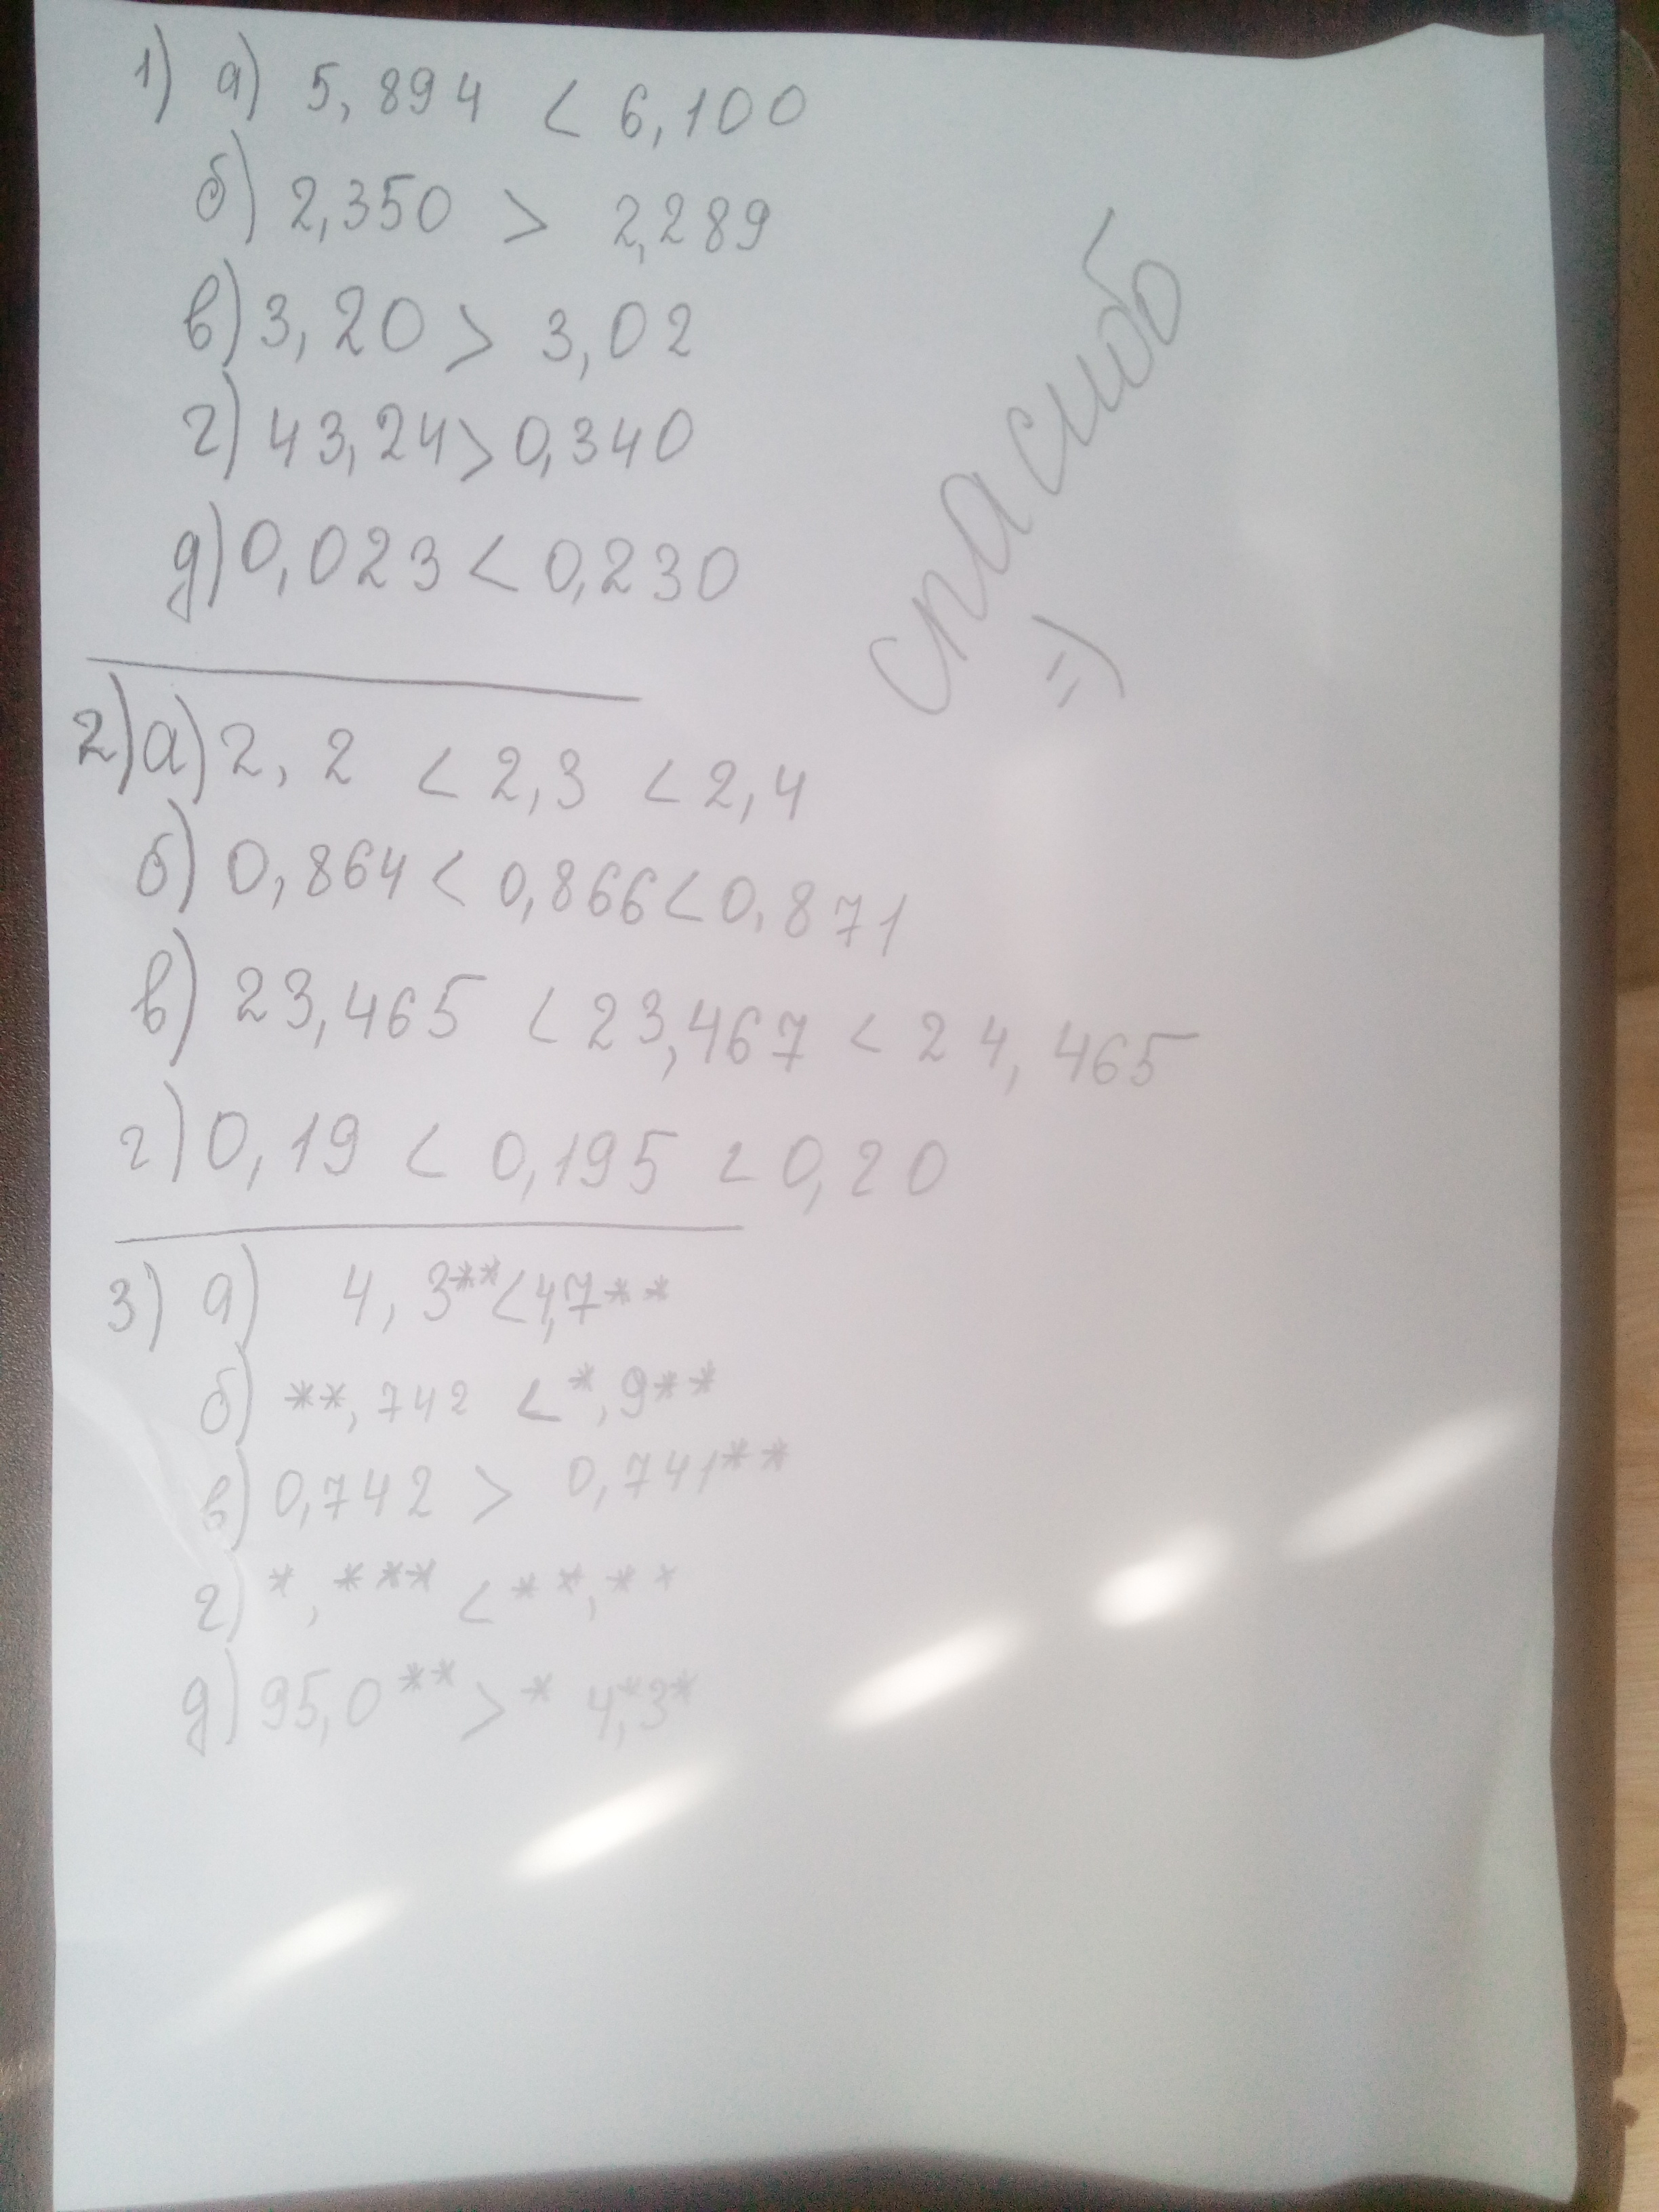 1) а) 5,894 < 6,100
б) 2,350 > 2,289
в) 3,20 > 3,02
г) 43,24 > 0,340
д) 0,023 < 0,230
спасибо
=)
2) а) 2,2 < 2,3 < 2,4
б) 0,864 < 0,866 < 0,871
в) 23,465 < 23,467 < 24,465
г) 0,19 < 0,195 < 0,20
3) а) 4,3** < 4,7**
б) **,742 < *,9**
в) 0,742 > 0,741**
г) *,*** < **,**
д) 95,0** > *4,*3*